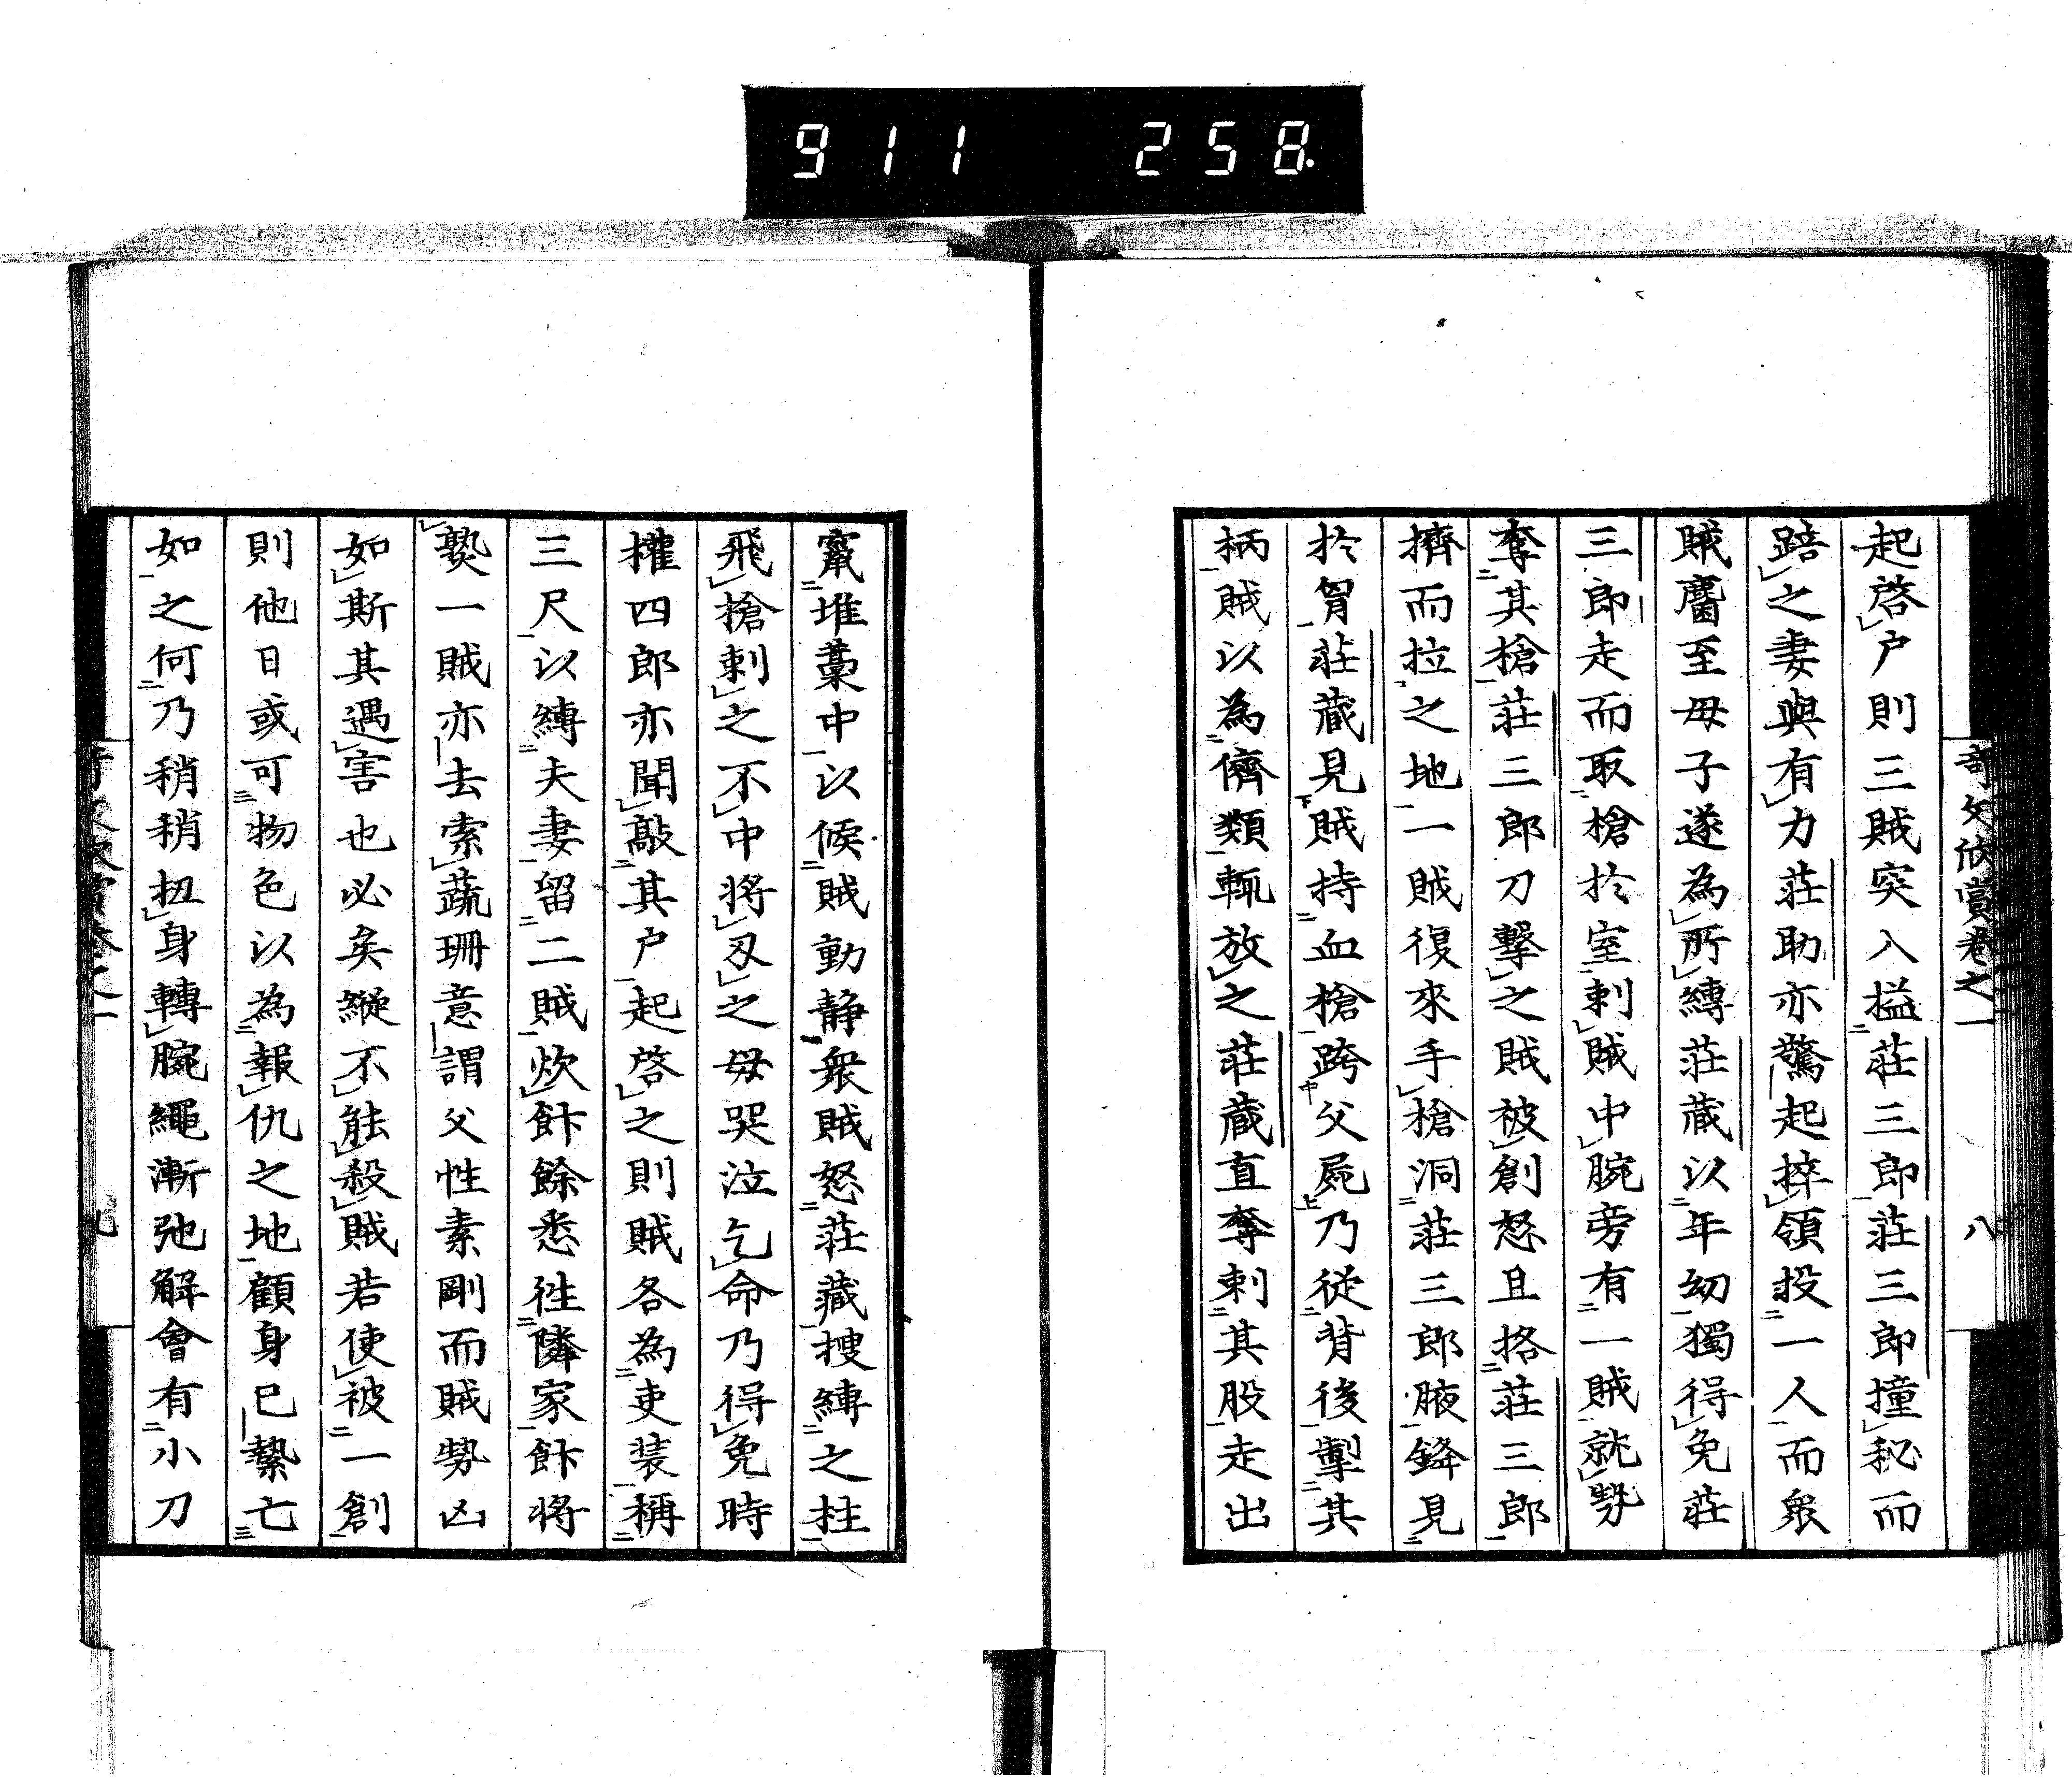 911 258
奇文欣賞卷之一 八
起啓户則三賊突入搤莊三郎莊三郎撞秘而
踣之妻與有力莊助亦驚起捽領投一人而衆
賊麕至母子遂為所縛莊蔵以年幼獨得免莊
三郎走而取槍於室刺賊中腕旁有一賊就勢
奪其槍莊三郎刀擊之賊被創怒且挌莊三郎
擠而拉之地一賊復來手槍洞莊三郎腋鋒見
於胷莊蔵見賊持血槍跨父屍乃從背後掣其
柄賊以為儕類輒放之莊蔵直奪刺其股走出
竄堆藁中以候賊動静衆賊怒莊藏搜縛之柱
飛搶刺之不中将刄之母哭泣乞命乃得免時
權四郎亦聞敲其户起啓之則賊各為吏装稱
三尺以縛夫妻留二賊炊飰餘悉徃隣家飰将
爂一賊亦去索蔬珊意謂父性素剛而賊勢凶
如斯其遇害也必矣縱不能殺賊若使被一創
則他日或可物色以為報仇之地顧身已縶亡
如之何乃稍稍扭身轉腕繩漸弛解會有小刀
九